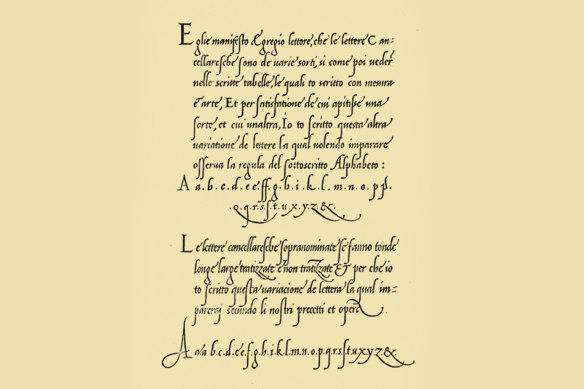 Eglie manifesto Egregio lettore, che le lettere Can=
cellaresche sono de varie sorti, si come poi veder
nelle scritte tabelle, le quali io scritto con mesura
e arte, Et per satisfatione de cui apitisse una
sorte, et cui unaltra, Io to scritto questa altra
variatione de lettere la qual volendo imparare
osserva la regula del sottoscritto Alphabeto:
A a.b.c.d.e.ff.g.h.i.k.l.m.n.o.p.p.
.q.q.r.s.ſ.t.u.x.y.z.&.
Le lettere cancellaresche sopranominate se fanno tonde
longe large tratizzate e non tratizzate ET per che io
to scritto questa variacione de lettera la qual im=
parerai secundo li nostri precetti et opera
A a a b.c.d.e.e f.g.h.i.k.l.m.n.o.p.q.r.s.ſ.t.u.x.y.z.&.